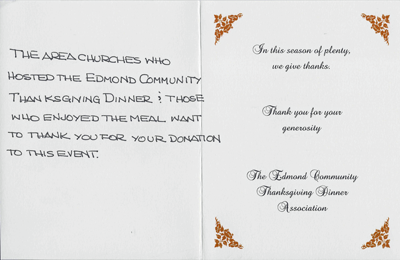 THE AREA CHURCHES WHO
HOSTED THE EDMOND COMMUNITY
THANKSGIVING DINNER & THOSE
WHO ENJOYED THE MEAL WANT
TO THANK YOU FOR YOUR DONATION
TO THIS EVENT.
In this season of plenty,
we give thanks.
Thank you for your
generosity
The Edmond Community
Thanksgiving Dinner
Association